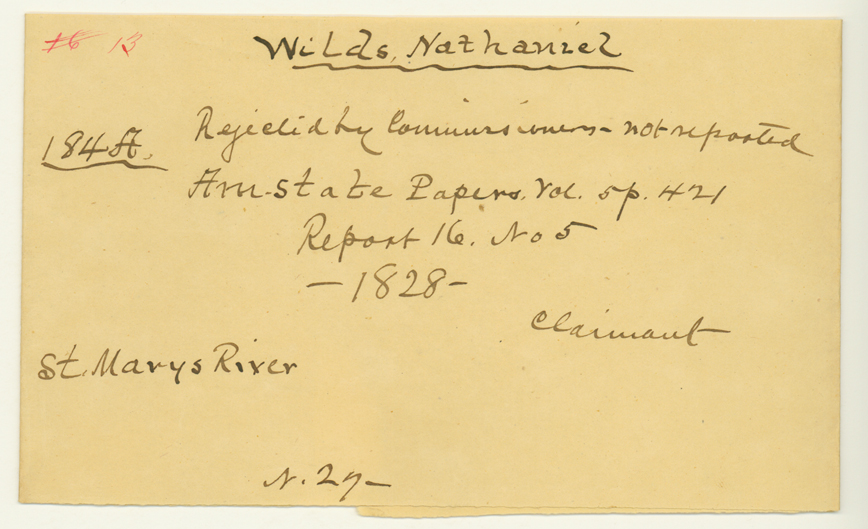 16 13
Wilds, Nathaniel
184 A.
Rejected by Commissioners - not reported
Am. State Papers. Vol. 5 p. 421
Report 16. No 5
- 1828 -
Claimant
St. Marys River
N. 27 -